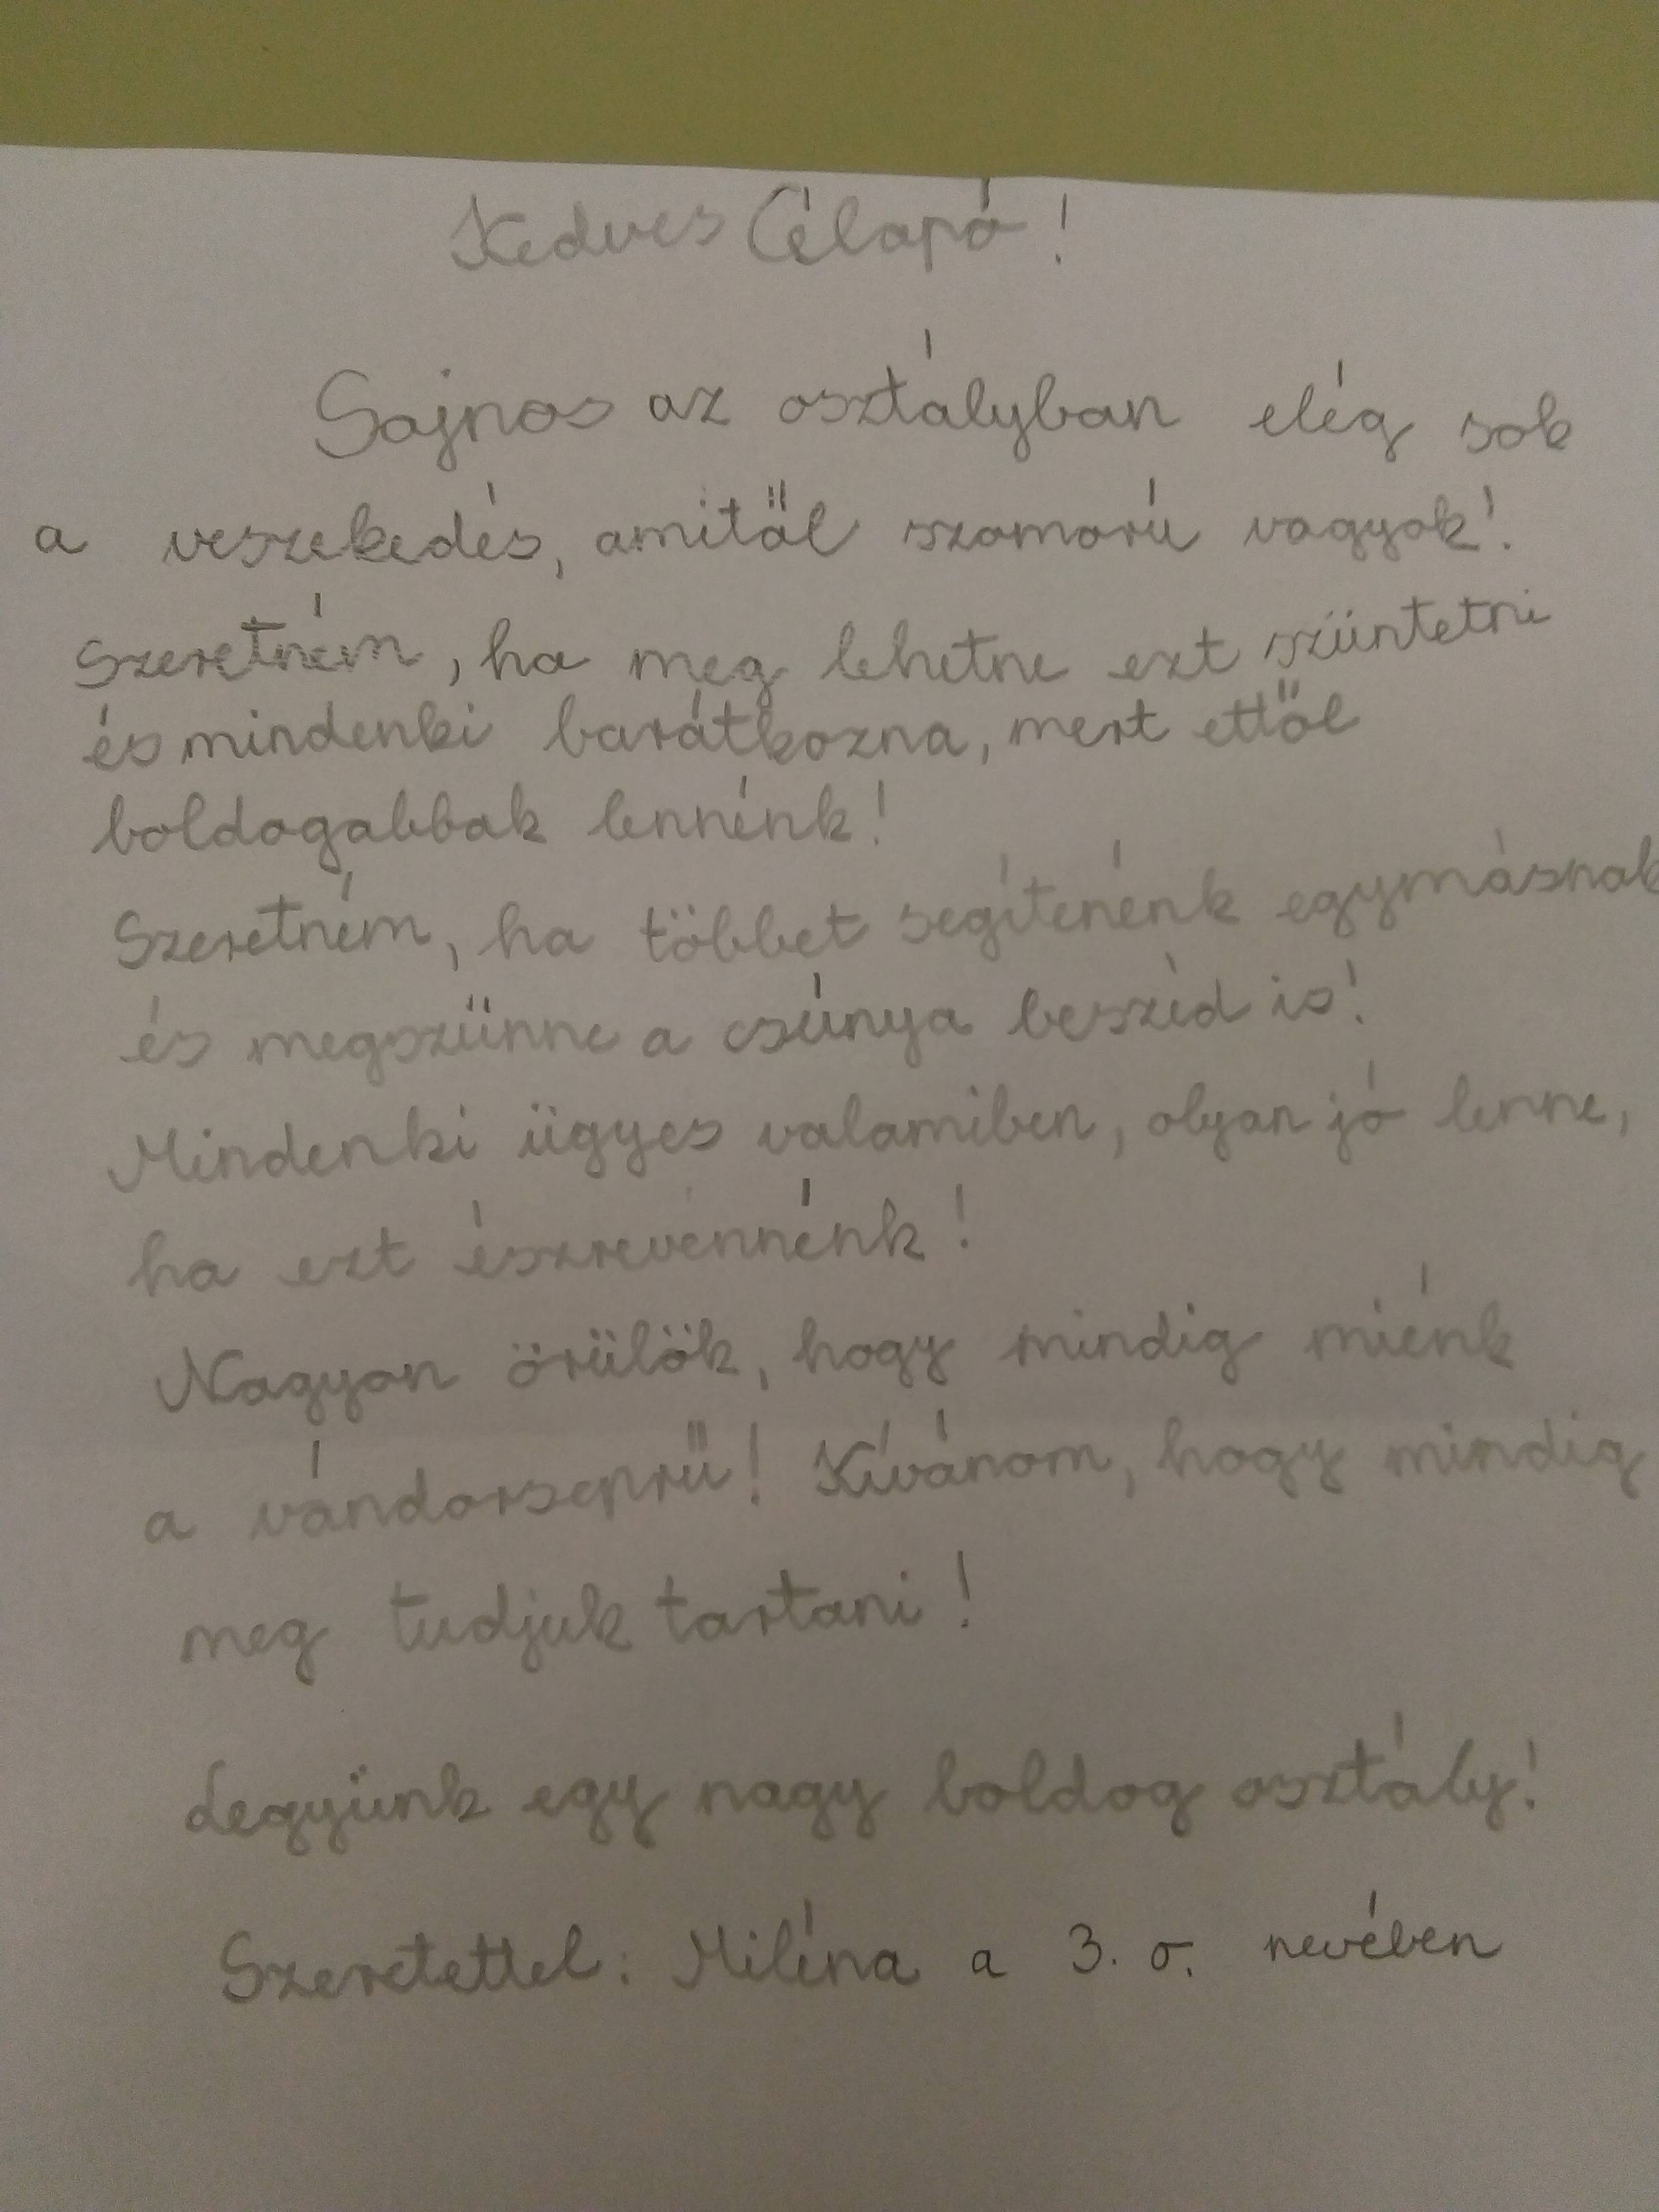 Kedves Célapó!
Sajnos az osztályban elég sok
a veszekedés, amitől szomorú vagyok!
Szeretném, ha meg lehetne ezt szüntetni
és mindenki barátkozna, mert ettől
boldogabbak lennénk!
Szeretném, ha többet segítenénk egymásnak
és megszűnne a csúnya beszéd is!
Mindenki ügyes valamiben, olyan jó lenne,
ha ezt észrevennénk!
Nagyon örülök, hogy mindig miénk
a vándorseprű! Kívánom, hogy mindig
meg tudjuk tartani!
Legyünk egy nagy boldog osztály!
Szeretettel: Miléna a 3. o. nevében